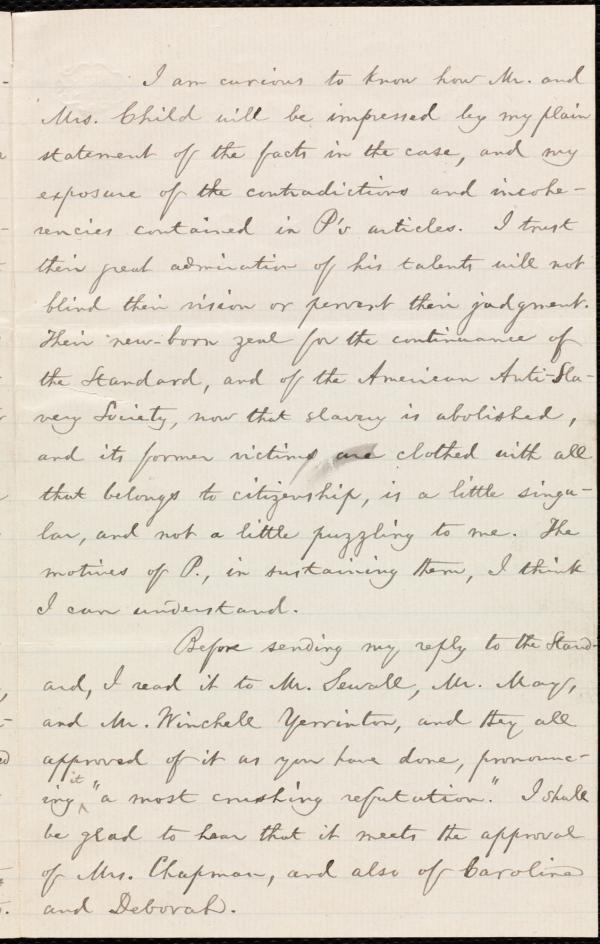 I am curious to know how Mr. and
Mrs. Child will be impressed by my plain
statement of the facts in the case, and my
exposure of the contradictions and incohe-
rencies contained in P's articles. I trust
their great admiration of his talents will not
blind their vision or pervert their judgment.
Their new-born zeal for the continuance of
the Standard, and of the American Anti-Sla-
very Society, now that slavery is abolished,
and its former victims are clothed with all
that belongs to citizenship, is a little singu-
lar, and not a little puzzling to me. The
motives of P., in sustaining them, I think
I can understand.
Before sending my reply to the Stand-
ard, I read it to Mr. Sewall, Mr. May,
and Mr. Winchell Yerrinton, and they all
approved of it as you have done, pronounc-
ing it "a most crushing refutation." I shall
be glad to hear that it meets the approval
of Mrs. Chapman, and also of Caroline
and Deborah.